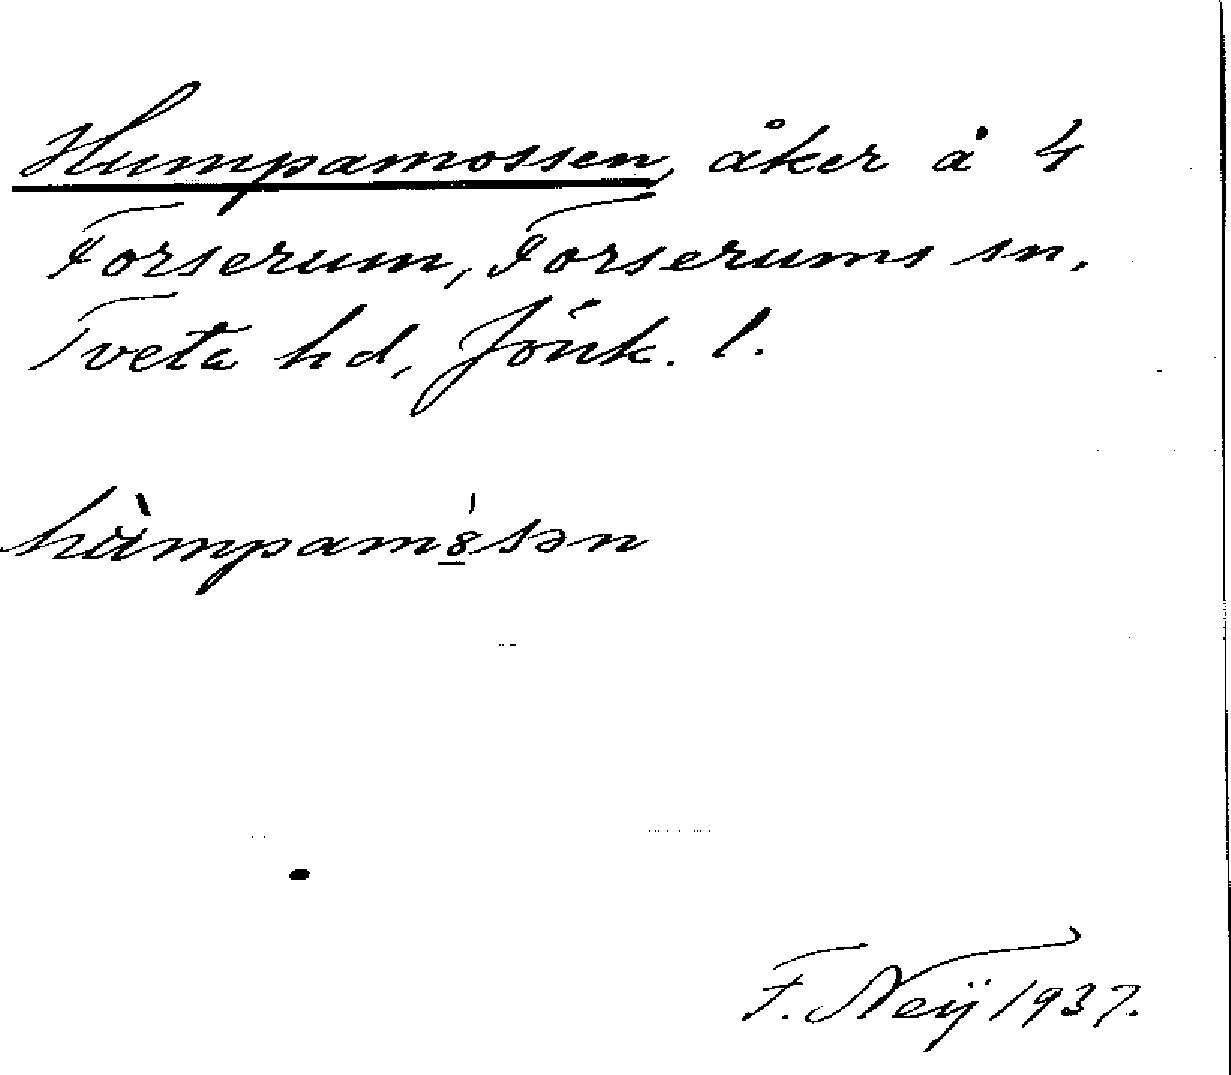 Humpamossen, åker å 4
Forserum, Forserums sn,
Tveta hd, Jönk. l.
hùmpam8́sən
F. Neij 1937.